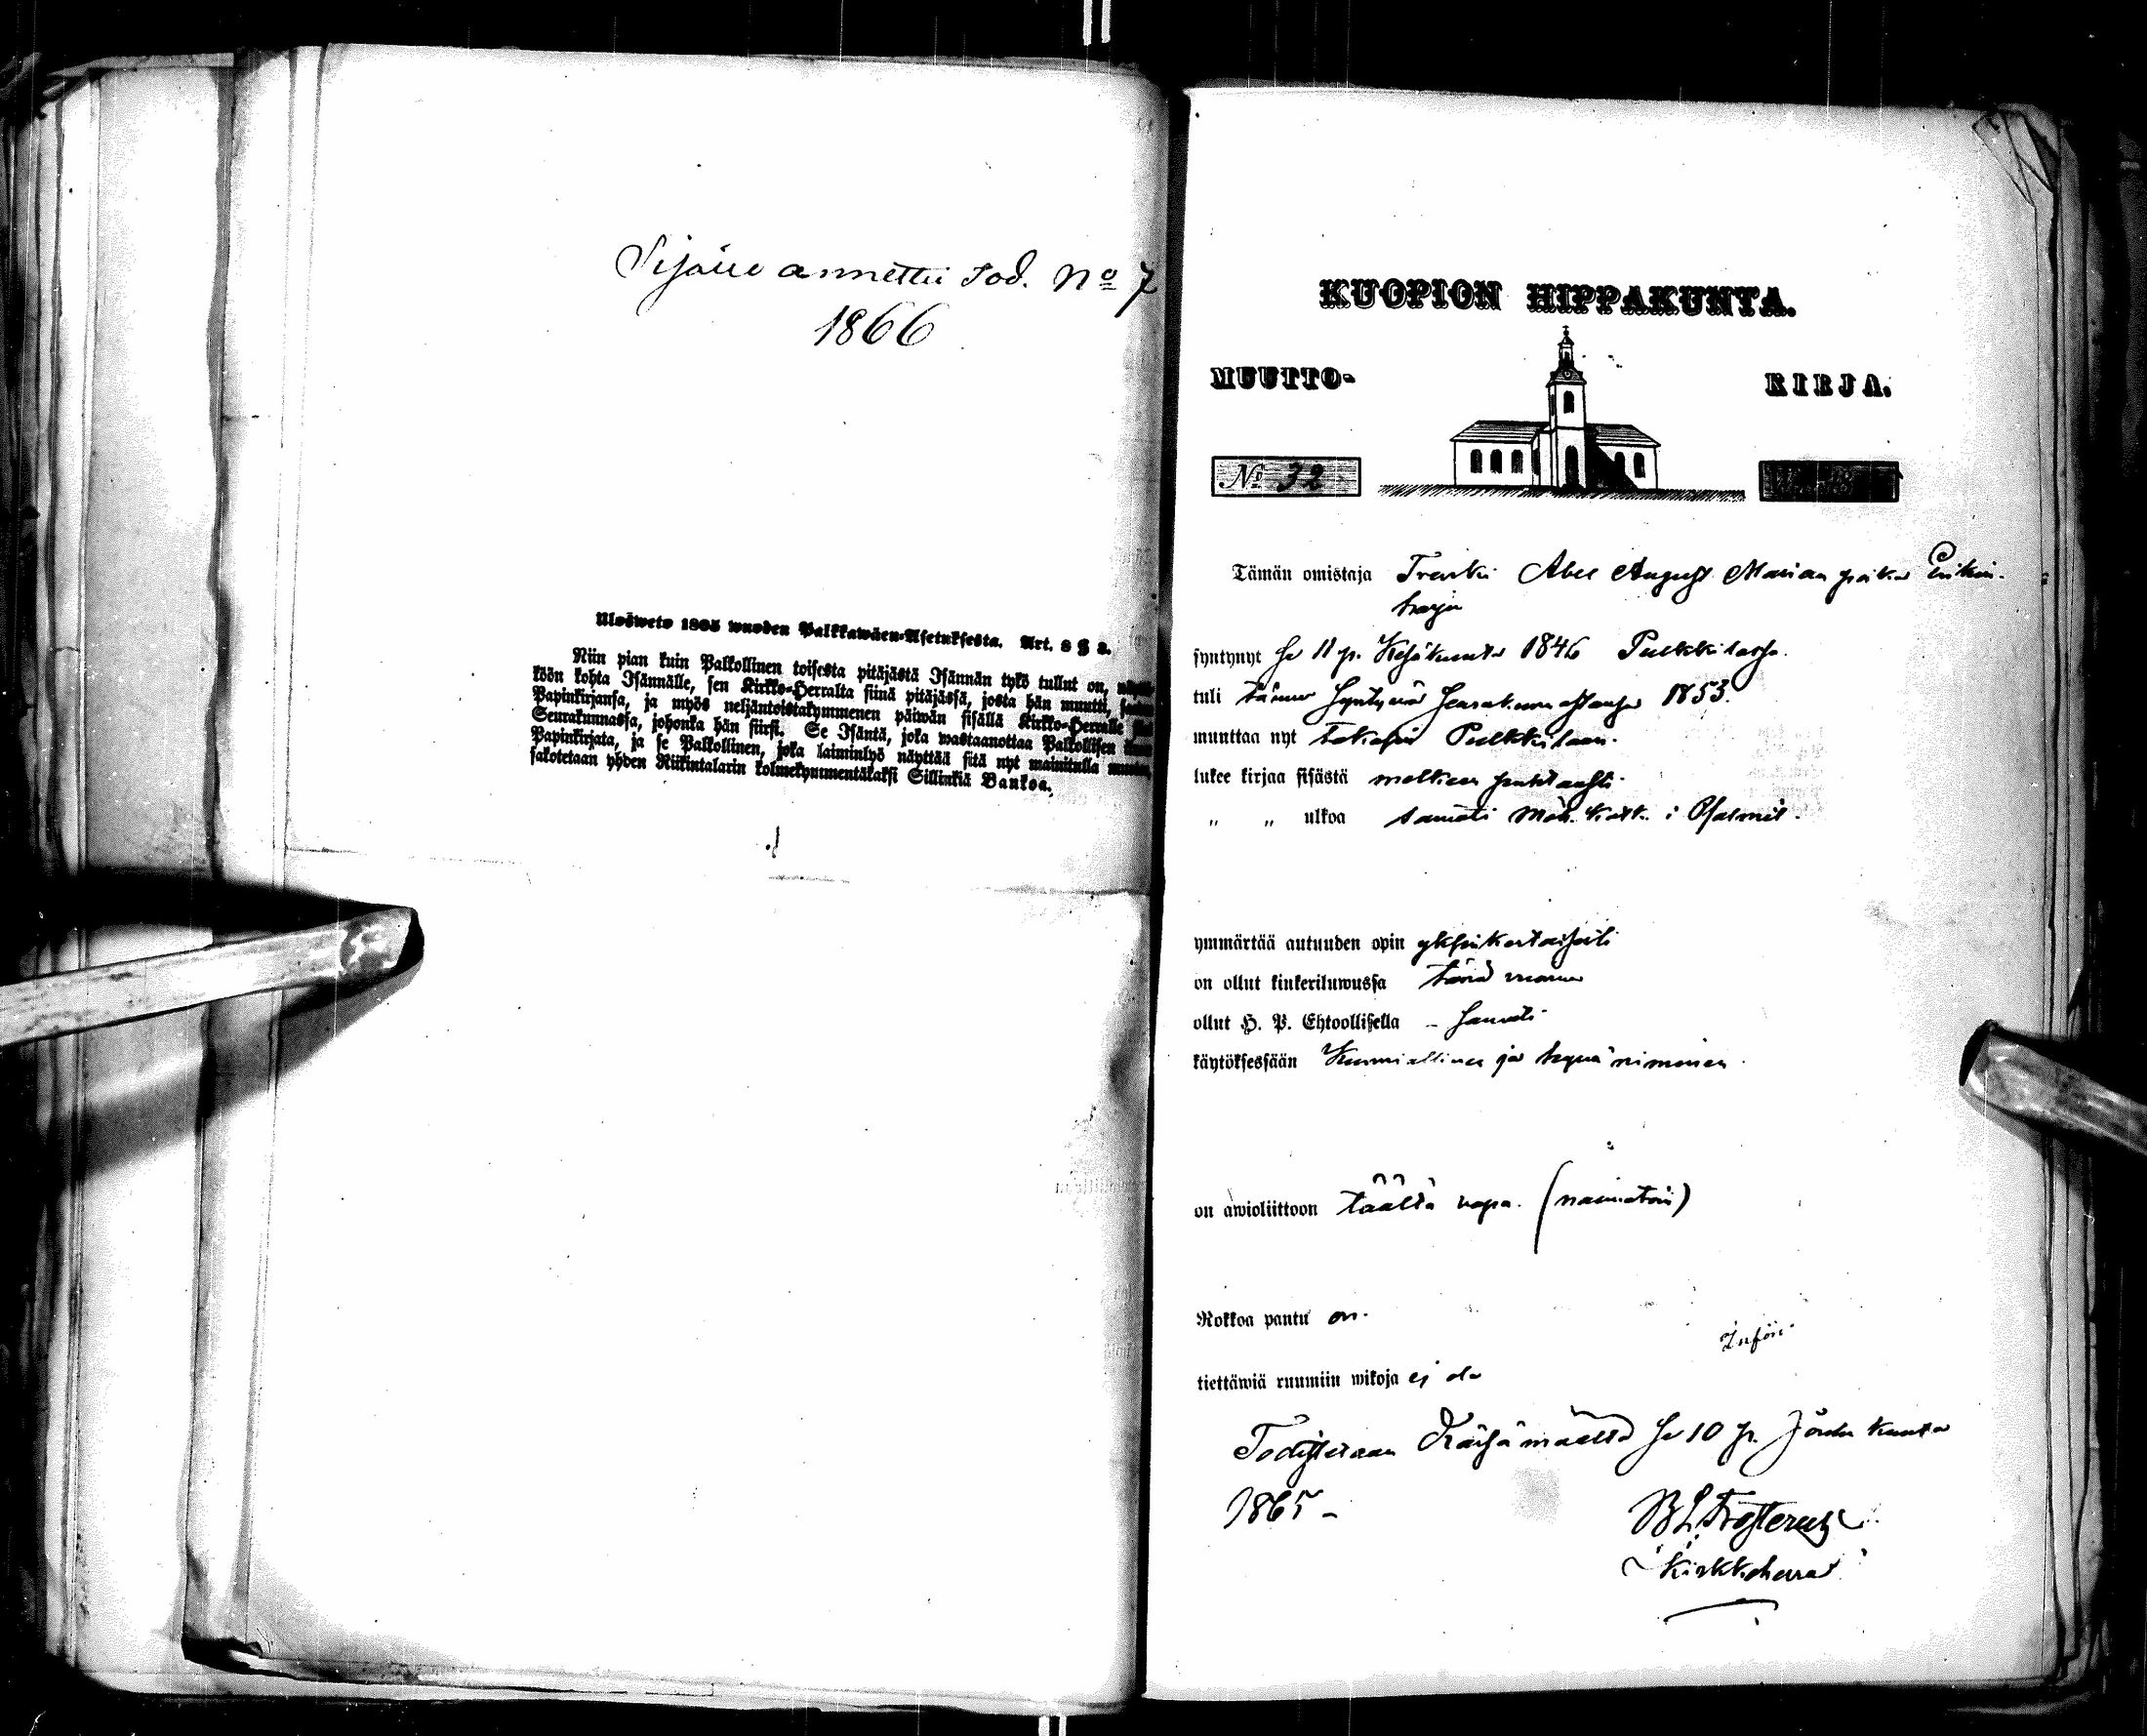 Sijaan annettu tod. No 7
1866
Ulosweto 1805 wuoden Palkkawäen-Asetuksesta. Art. 8 § 3.
Niin pian kuin Palkollinen toisesta pitäjästä Isännän tykö tullut on,
köön kohta Isännälle, sen Kirkko-Herralta siinä pitäjässä, josta hän muutti,
Papinkirjansa, ja myös neljäntoistakymmenen päiwän sisällä Kirkko-Herralle
Seurakunnassa, johonka hän siirsi. Se Isäntä, joka wastaanottaa Palkollisen
Papinkirjata, ja se Palkollinen, joka laiminlyö näyttää sitä nyt mainitulla
sakotetaan yhden Riikintalarin kolmekymmentäkaksi Sillinkiä Bankoa.
KUOPION HIPPAKUNTA.
MUUTTO- KIRJA.
No 32
Tämän omistaja Abel August Marian poika
harju
syntynyt se 11 p. Kesäkuuta 1846 Pulkkilassa.
tuli tänne 1853.
muuttaa nyt takasin Pulkkilaan.
lukee kirjaa sisästä melkeen puhtaasti
„ „ ulkoa samati kat. i Psalmit.
ymmärtää autuuden opin yksinkertaisesti
on ollut kinkeriluwussa tänä vuonna
ollut H. P. Ehtoollisella - samati
käytöksessään Kunniallinen ja hyvä niminen
on awioliittoon täältä vapa. (naimatoin)
Rokkoa pantu on.
tiettäwiä ruumiin wikoja ej ole
Todistetaan Kärsämäellä se 10 p. Joulu kuuta
1865 -
Kirkkoherra